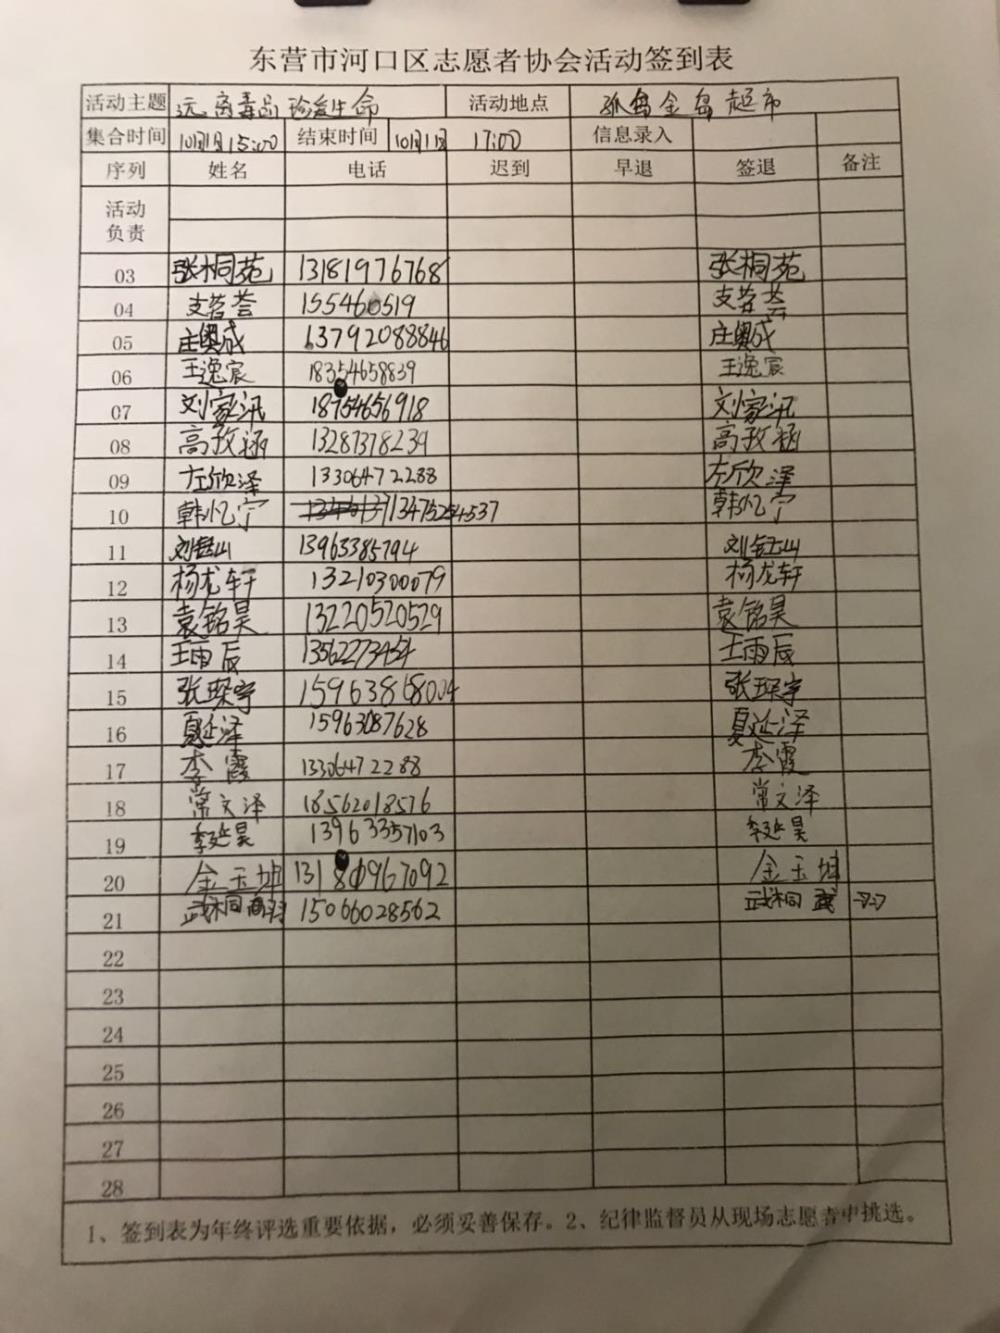 东营市河口区志愿者协会活动签到表
活动主题 远离毒品 珍爱生命 活动地点 孤岛金岛超市
集合时间 10月1日15:00 结束时间 10月1日 17:00 信息录入
序列 姓名 电话 迟到 早退 签退 备注
活动
负责
03 张桐苑 13181976768 张桐苑
04 支茗荟 155460519 支茗荟
05 庄奥成 13792088846 庄奥成
06 王逸宸 18354658839 王逸宸
07 刘家汛 18754656918 刘家汛
08 高孜涵 13287378239 高孜涵
09 左欣泽 13306472288 左欣泽
10 韩忆宁 13475254537 韩忆宁
11 刘钰山 13963385794 刘钰山
12 杨龙轩 13210300079 杨龙轩
13 袁铭昊 13220520529 袁铭昊
14 王雨辰 13562273454 王雨辰
15 张琛宇 15963868004 张琛宇
16 夏延泽 15963087628 夏延泽
17 李霞 13306472288 李霞
18 常文泽 18562018576 常文泽
19 李延昊 13963357103 李延昊
20 金玉坤 13180967092 金玉坤
21 武桐 15066028562 武桐
22
23
24
25
26
27
28
1、签到表为年终评选重要依据，必须妥善保存。2、纪律监督员从现场志愿者中挑选。